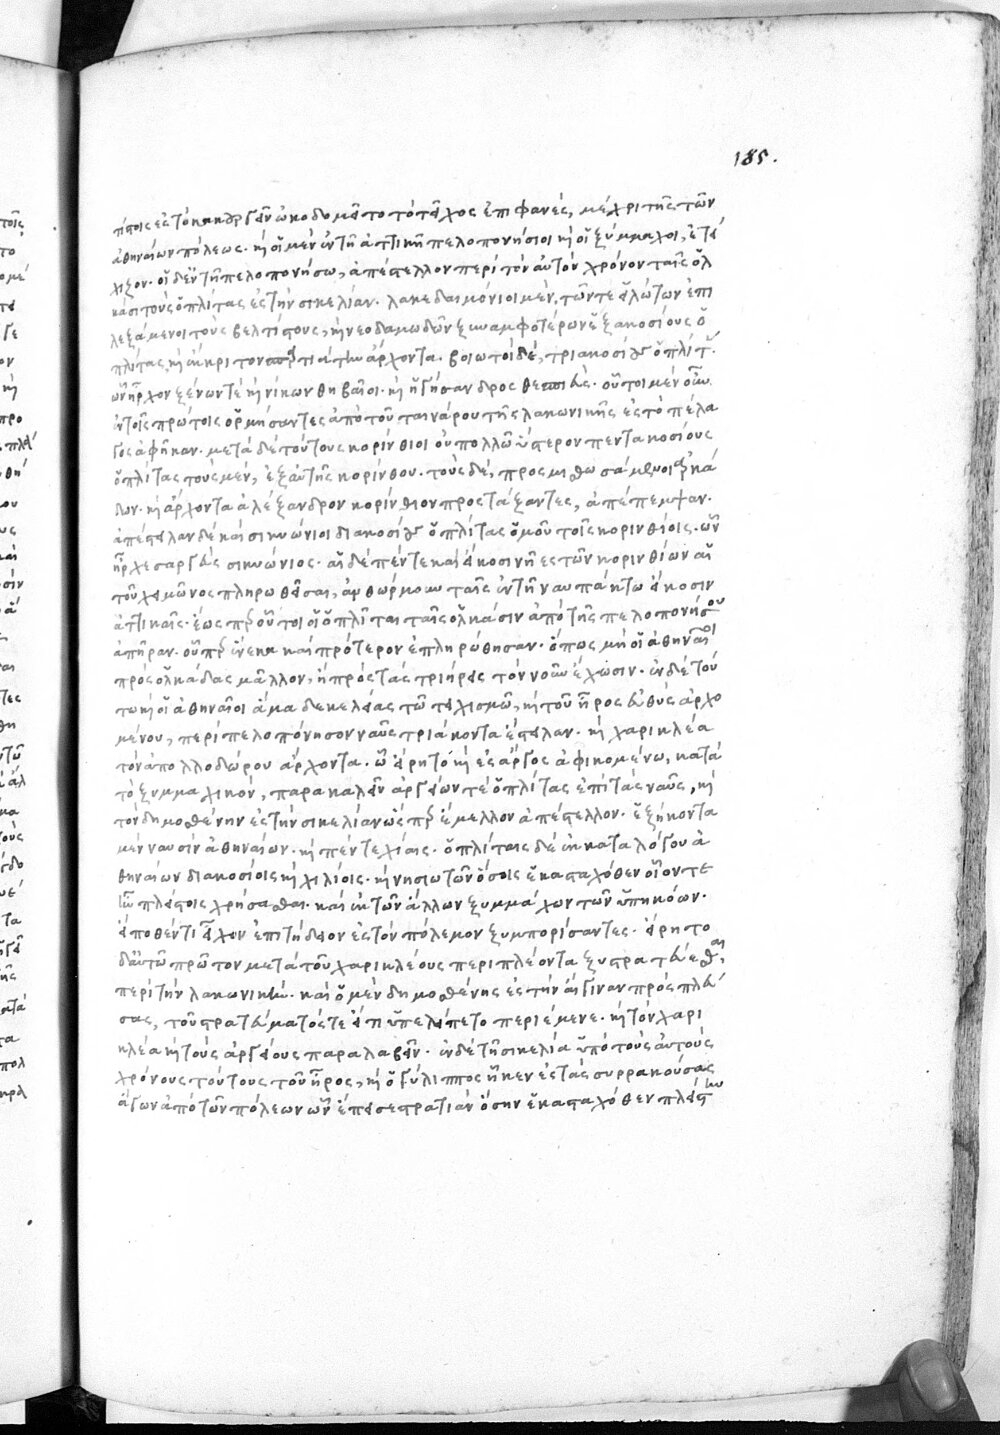 185.
τίστοις ἐς τὸ κακουργεῖν ὠκοδομεῖτο τὸ τεῖχος ἐπιφανές, μέχρι τῆς τῶν
ἀθηναίων πόλεως. καὶ οἱ μὲν ἐν τῆ ἀττικῆ πελοπονήσιοι καὶ οἱ ξύμμαχοι, ἐτεί
χιζον. οἱ δ' ἐν τῆ πελοπονήσω, ἀπέστελλον περὶ τὸν αὐτὸν χρόνον ταῖς ὁλ
κάσι τοὺς ὁπλίτας ἐς τὴν σικελίαν. λακεδαιμόνιοι μὲν, τῶν τε εἱλώτων ἐπι
λεξάμενοι τοὺς βελτίστους, καὶ νεοδαμωδῶν ξυναμφοτέρων ἑξακοσίους ὁ
πλίτας καὶ ἔκκριτον σπαρτιάτην ἄρχοντα. βοιωτοὶ δὲ, τριακοσίους ὁπλίτας
ὧν ἦρχον ξένων τὲ καὶ νίκων θηβαῖοι. καὶ ἡγήσανδρος θεσπιεύς. οὗτοι μὲν οὖν
ἐν τοῖς πρώτοις ὁρμήσαντες ἀπὸ τοῦ ταινάρου τῆς λακωνικῆς ἐς τὸ πέλα
γος ἀφῆκαν. μετὰ δὲ τούτους κορίνθιοι οὐ πολλῶ ὕστερον πεντακοσίους
ὁπλίτας τοὺς μὲν, ἐξ αὐτῆς κορίνθου. τοὺς δὲ, προσμισθωσάμενοι ἀρκά
δων. καὶ ἄρχοντα ἀλέξανδρον κορίνθιον προστάξαντες, ἀπέπεμψαν.
ἀπέστειλαν δὲ καὶ σικυώνιοι διακοσίους ὁπλίτας ὁμοῦ τοῖς κορινθίοις. ὧν
ἦρχε σαργεὺς σικυώνιος. αἱ δὲ πέντε καὶ εἴκοσι νῆες τῶν κορινθίων αἱ
τοῦ χειμῶνος πληρωθεῖσαι, ἀνθώρμουν ταῖς ἐν τῆ ναυπάκτω εἴκοσιν
ἀττικαῖς. ἕως περ οὗτοι οἱ ὁπλῖται ταῖς ὁλκάσιν ἀπὸ τῆς πελοπονήσου
ἀπῆραν. οὗπερ ἕνεκα καὶ πρότερον ἐπληρώθησαν. ὅπως μὴ οἱ ἀθηναῖοι
πρὸς ὁλκάδας μᾶλλον, ἢ πρὸς τὰς τριήρεις τὸν νοῦν ἔχωσιν. ἐν δὲ τού
τω καὶ οἱ ἀθηναῖοι ἅμα δεκελείας τῶ τειχισμῶ, καὶ τοῦ ἦρος εὐθὺς ἀρχο
μένου, περὶ πελοπόνησον ναῦς τριάκοντα ἔστειλαν. καὶ χαρικλέα
τὸν ἀπολλοδώρου ἄρχοντα. ὧ εἴρητο καὶ ἐς ἄργος ἀφικομένω, κατὰ
τὸ ξυμμαχικὸν, παρακαλεῖν ἀργείων τὲ ὁπλίτας ἐπὶ τὰς ναῦς, καὶ
τὸν δημοσθένην ἐς τὴν σικελίαν ὥσπερ ἔμελλον ἀπέστελλον. ἑξήκοντα
μὲν ναυσὶν ἀθηναίων. καὶ πέντε χίαις. ὁπλίταις δὲ ἐκ καταλόγου ἀ
θηναίων διακοσίοις καὶ χιλίοις. καὶ νησιωτῶν ὅσοις ἑκασταχόθεν οἷον τε
ἦν πλείστοις χρήσασθαι. καὶ ἐκ τῶν ἄλλων ξυμμάχων τῶν ὑπηκόων.
εἴ ποθέν τι εἶχον ἐπιτήδειον ἐς τὸν πόλεμον ξυμπορίσαντες. εἴρητο
δ' αὐτῶ πρῶτον μετὰ τοῦ χαρικλέους περιπλέοντα ξυστρατεύεσθαι
περὶ τὴν λακωνικήν. καὶ ὁ μὲν δημοσθένης ἐς τὴν αἴγιναν πρὸς πλεύ
σας, τοῦ στρατεύματός τε εἴ τι ὑπελείπετο περιέμενε. καὶ τὸν χαρι
κλέα καὶ τοὺς ἀργείους παραλαβεῖν. ἐν δὲ τῆ σικελία ὑπὸ τοὺς αὐτοὺς
χρόνους τούτους τοῦ ἦρος, καὶ ὁ γύλιππος ἧκεν ἐς τὰς συρρακούσας
ἄγων ἀπὸ τῶν πόλεων ὧν ἔπεισε στρατιὰν ὅσην ἑκασταχόθεν πλείστην